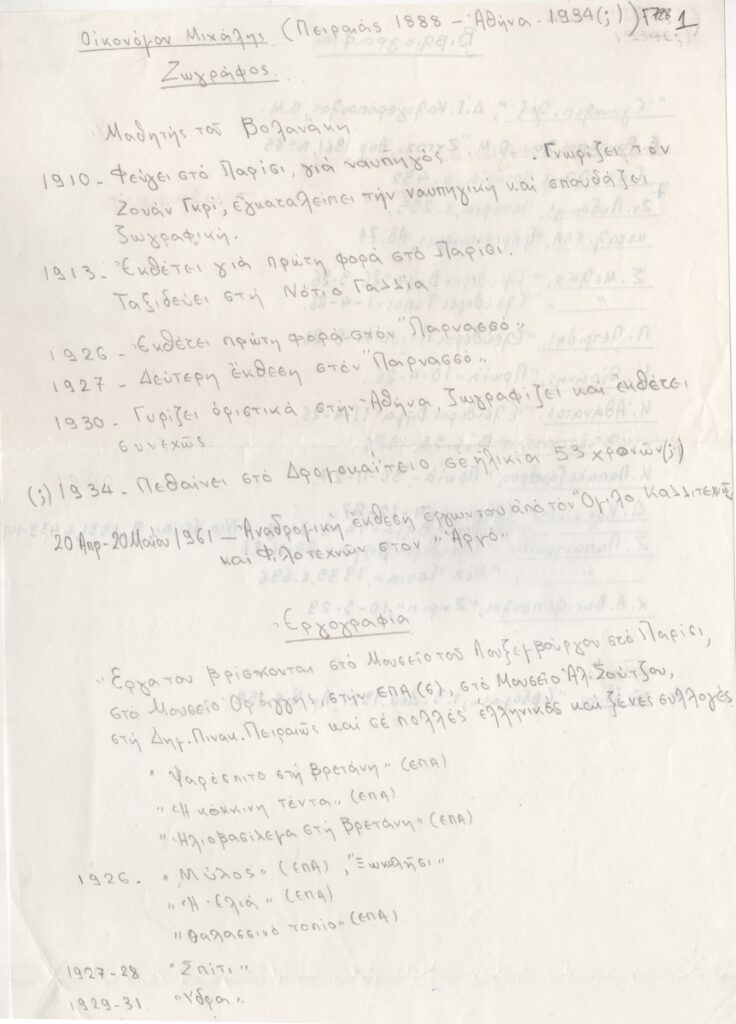 Οἰκονόμου Μιχάλης (Πειραιάς 1888 - Ἀθήνα - 1934(;)) Γ728 1
Ζωγράφος.
Μαθητής τοῦ Βολανάκη
1910 - Φεύγει στό Παρίσι, γιά ναυπηγός. Γνωρίζει τόν
Ζουάν Γκρί, ἐγκαταλείπει τήν ναυπηγική καί σπουδάζει
ζωγραφική.
1913 - Ἐκθέτει γιά πρώτη φορά στό Παρίσι.
Ταξιδεύει στή Νότιο Γαλλία.
1926 - Ἐκθέτει πρώτη φορά στόν "Παρνασσό"
1927 - Δεύτερη ἔκθεση στόν "Παρνασσό"
1930 - Γυρίζει ὁριστικά στήν Ἀθήνα, ζωγραφίζει καί ἐκθέτει
συνεχῶς
(;) 1934 - Πεθαίνει στό Δρομοκαΐτειο σέ ἡλικία 53 χρονῶν(;)
20 Απρ-20 Μαΐου 1961 - Ἀναδρομική ἔκθεση ἔργων του ἀπό τόν Ὅμιλο Καλλιτεχνῶν
καί Φιλοτεχνῶν στόν "Ἀργώ"
Ἐργογραφία
Ἔργα του βρίσκονται στό Μουσεῖο τοῦ Λουξεμβούργου στό Παρίσι,
στό Μουσεῖο Ὀράγγης, στήν ΕΠΑ (6), στό Μουσεῖο Ἀλ. Σούτζου,
στή Δημ. Πινακ. Πειραιῶς καί σέ πολλές ἑλληνικές καί ξένες συλλογές
"Ψαρόσπιτο στή Βρετάνη" (ΕΠΑ)
"Ἡ κόκκινη τέντα" (ΕΠΑ)
"Ἡλιοβασίλεμα στή Βρετάνη" (ΕΠΑ)
1926. "Μύλος" (ΕΠΑ), "Ξωκλῆσι"
"Ἡ Ἐλιά" (ΕΠΑ)
"Θαλασσινό τοπίο" (ΕΠΑ)
1927-28 "Σπίτι"
1929-31. "Ύδρα"